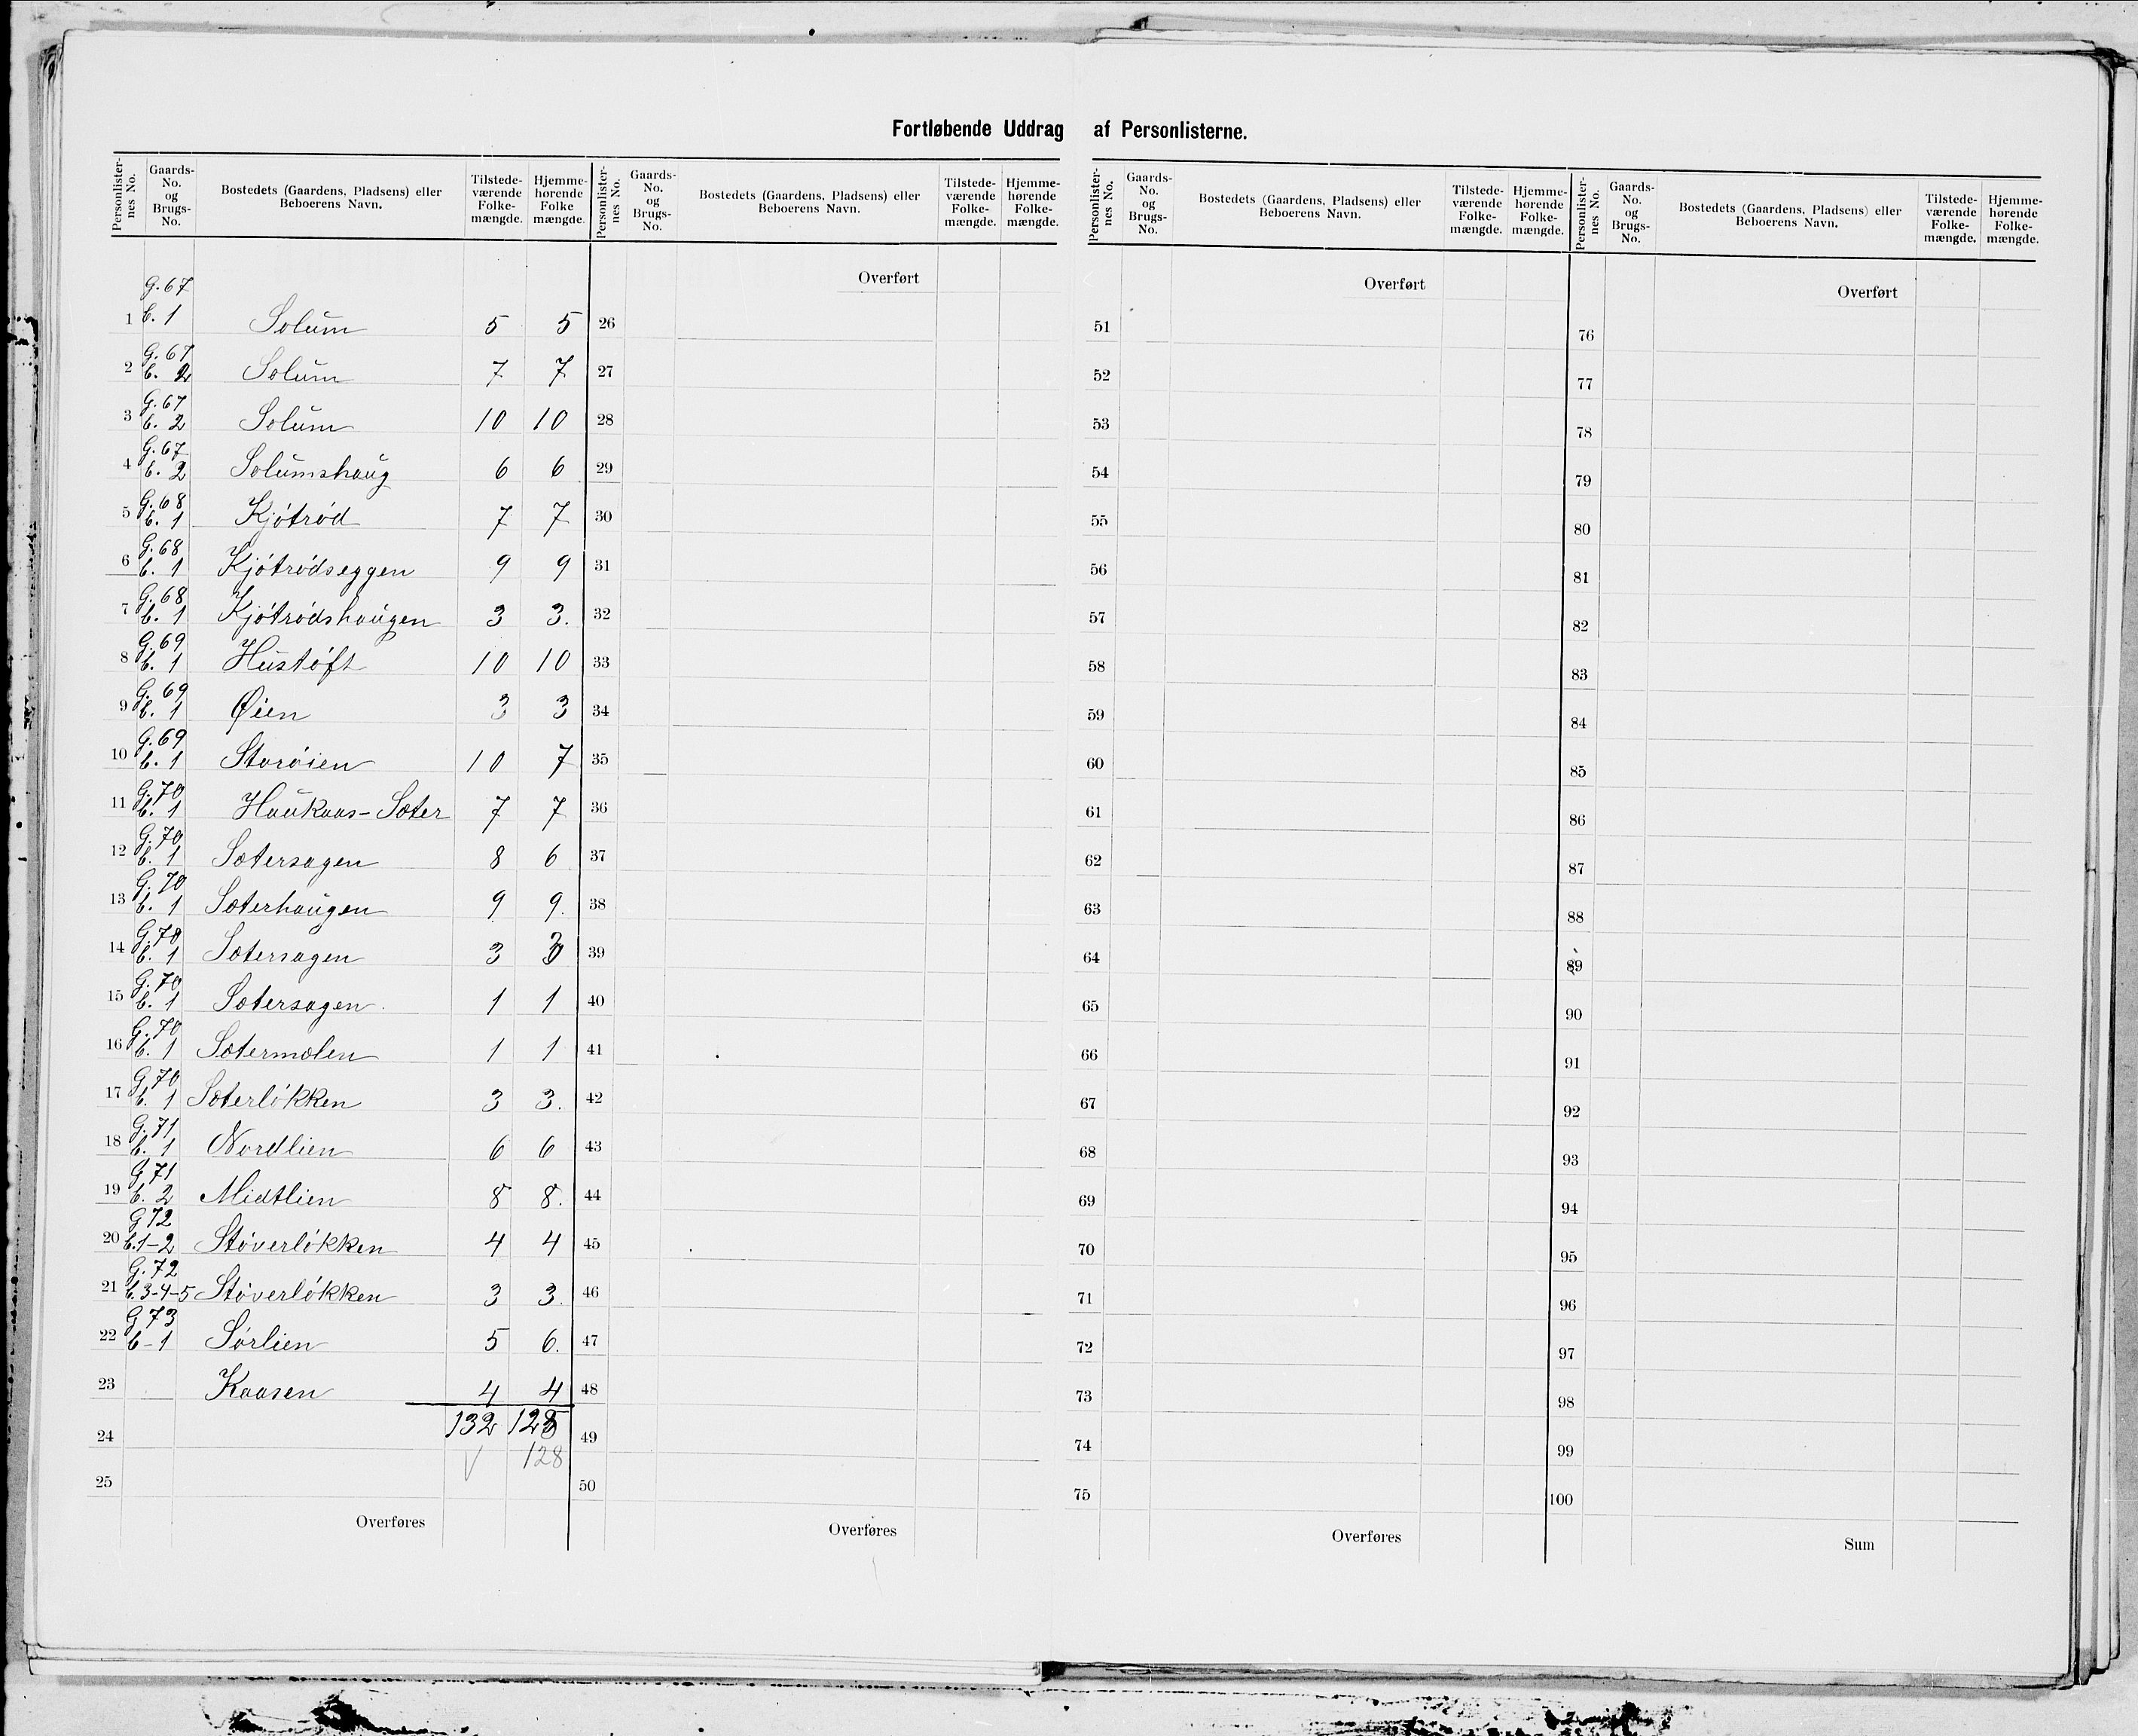 Fortløbende Uddrag af Personlisterne.
Personlister-nes No. | Gaards-No. og Brugs-No. | Bostedets (Gaardens, Pladsens) eller Beboerens Navn. | Tilstede-værende Folke-mængde. | Hjemme-hørende Folke mængde. | Personlister-nes No. | Gaards-No. og Brugs-No. | Bostedets (Gaardens, Pladsens) eller Beboerens Navn. | Tilstede-værende Folke-mængde. | Hjemme-hørende Folke-mængde. | Personlister-nes No. | Gaards-No. og Brugs-No. | Bostedets (Gaardens, Pladsens) eller Beboerens Navn. | Tilstede-værende Folke-mængde. | Hjemme-hørende Folke-mængde. | Personlister-nes No. | Gaards-No. og Brugs-No. | Bostedets (Gaardens, Pladsens) eller Beboerens Navn. | Tilstede-værende Folke-mængde. | Hjemme-hørende Folke-mængde.
Overført Overført Overført
1 G. 67 b. 1 Solum 5 5 26 51 76
2 G. 67 b. 2 Solum 7 7 27 52 77
3 G. 67 b. 2 Solum 10 10 28 53 78
4 G. 67 b. 2 Solumshaug 6 6 29 54 79
5 G. 68 b. 1 Kjøtrød 7 7 30 55 80
6 G. 68 b. 1 Kjøtrødseggen 9 9 31 56 81
7 G. 68 b. 1 Kjøtrødshaugen 3 3. 32 57 82
8 G. 69 b. 1 Hustøft 10 10 33 58 83
9 G. 69 b. 1 Øien 3 3 34 59 84
10 G. 69 b. 1 Storøien 10 7 35 60 85
11 G. 70 b. 1 Haukaas-Sæter 7 7 36 61 86
12 G. 70 b. 1 Sætersagen 8 6 37 62 87
13 G. 70 b. 1 Sæterhaugen 9 9. 38 63 88
14 G. 70 b. 1 Sætersagen 3 3 39 64 89
15 G. 70 b. 1 Sætersagen 1 1 40 65 90
16 G. 70 b. 1 Sætermælen 1 1 41 66 91
17 G. 70 b. 1 Sæterløkken 3 3. 42 67 92
18 G. 71 b. 1 Nordlien 6 6 43 68 93
19 G 71 b. 2 Midtlien 8 8. 44 69 94
20 G 72 b. 1-2 Støverløkken 4 4 45 70 95
21 G. 72 b. 3-4-5 Støverløkken 3 3. 46 71 96
22 G 73 b-1 Sørlien 5 6. 47 72 97
23 Kaasen 4 4 48 73 98
24 132 128 49 74 99
128
25 50 75 100
Overføres Overføres Overføres Sum